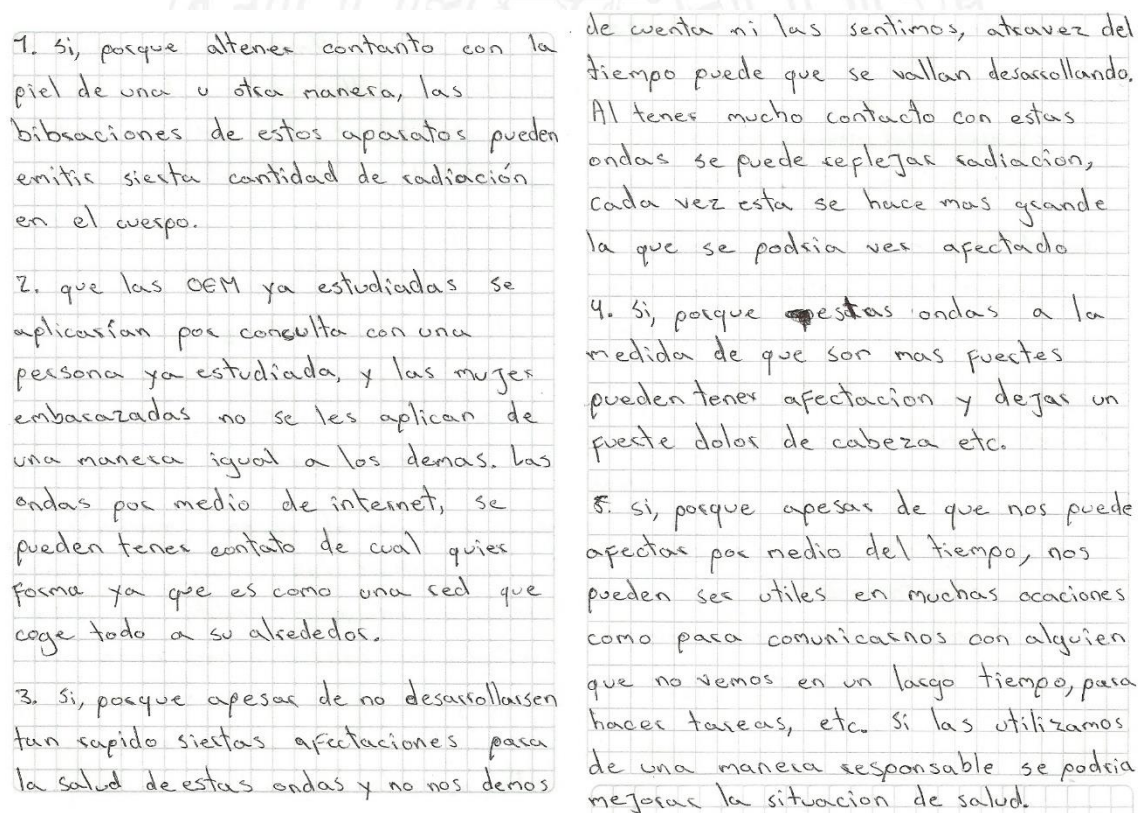 1. si, porque altener contanto con la
piel de una u otra manera, las
bibraciones de estos aparatos pueden
emitir sierta cantidad de radiación
en el cuerpo.
2. que las OEM ya estudiadas se
aplicarían por consulta con una
persona ya estudiada, y las mujer
embarazadas no se les aplican de
una manera igual a los demas. Las
ondas por medio de internet, se
pueden tener contato de cual quier
forma ya que es como una red que
coge todo a su alrededor.
3. Si, porque apesar de no desarrollarsen
tan rapido siertas afectaciones para
la salud de estas ondas y no nos demos
de cuenta ni las sentimos, atravez del
tiempo puede que se vallan desarrollando.
Al tener mucho contacto con estas
ondas se puede replejar radiacion,
cada vez esta se hace mas grande
la que se podria ver afectado
4. si, porque estas ondas a la
medida de que son mas fuertes
pueden tener afectacion y dejar un
fuerte dolor de cabeza etc.
5. si, porque apesar de que nos puede
afectar por medio del tiempo, nos
pueden ser utiles en muchas ocaciones
como para comunicarnos con alguien
que no vemos en un largo tiempo, para
hacer tareas, etc. Si las utilizamos
de una manera responsable se podria
mejorar la situacion de salud.